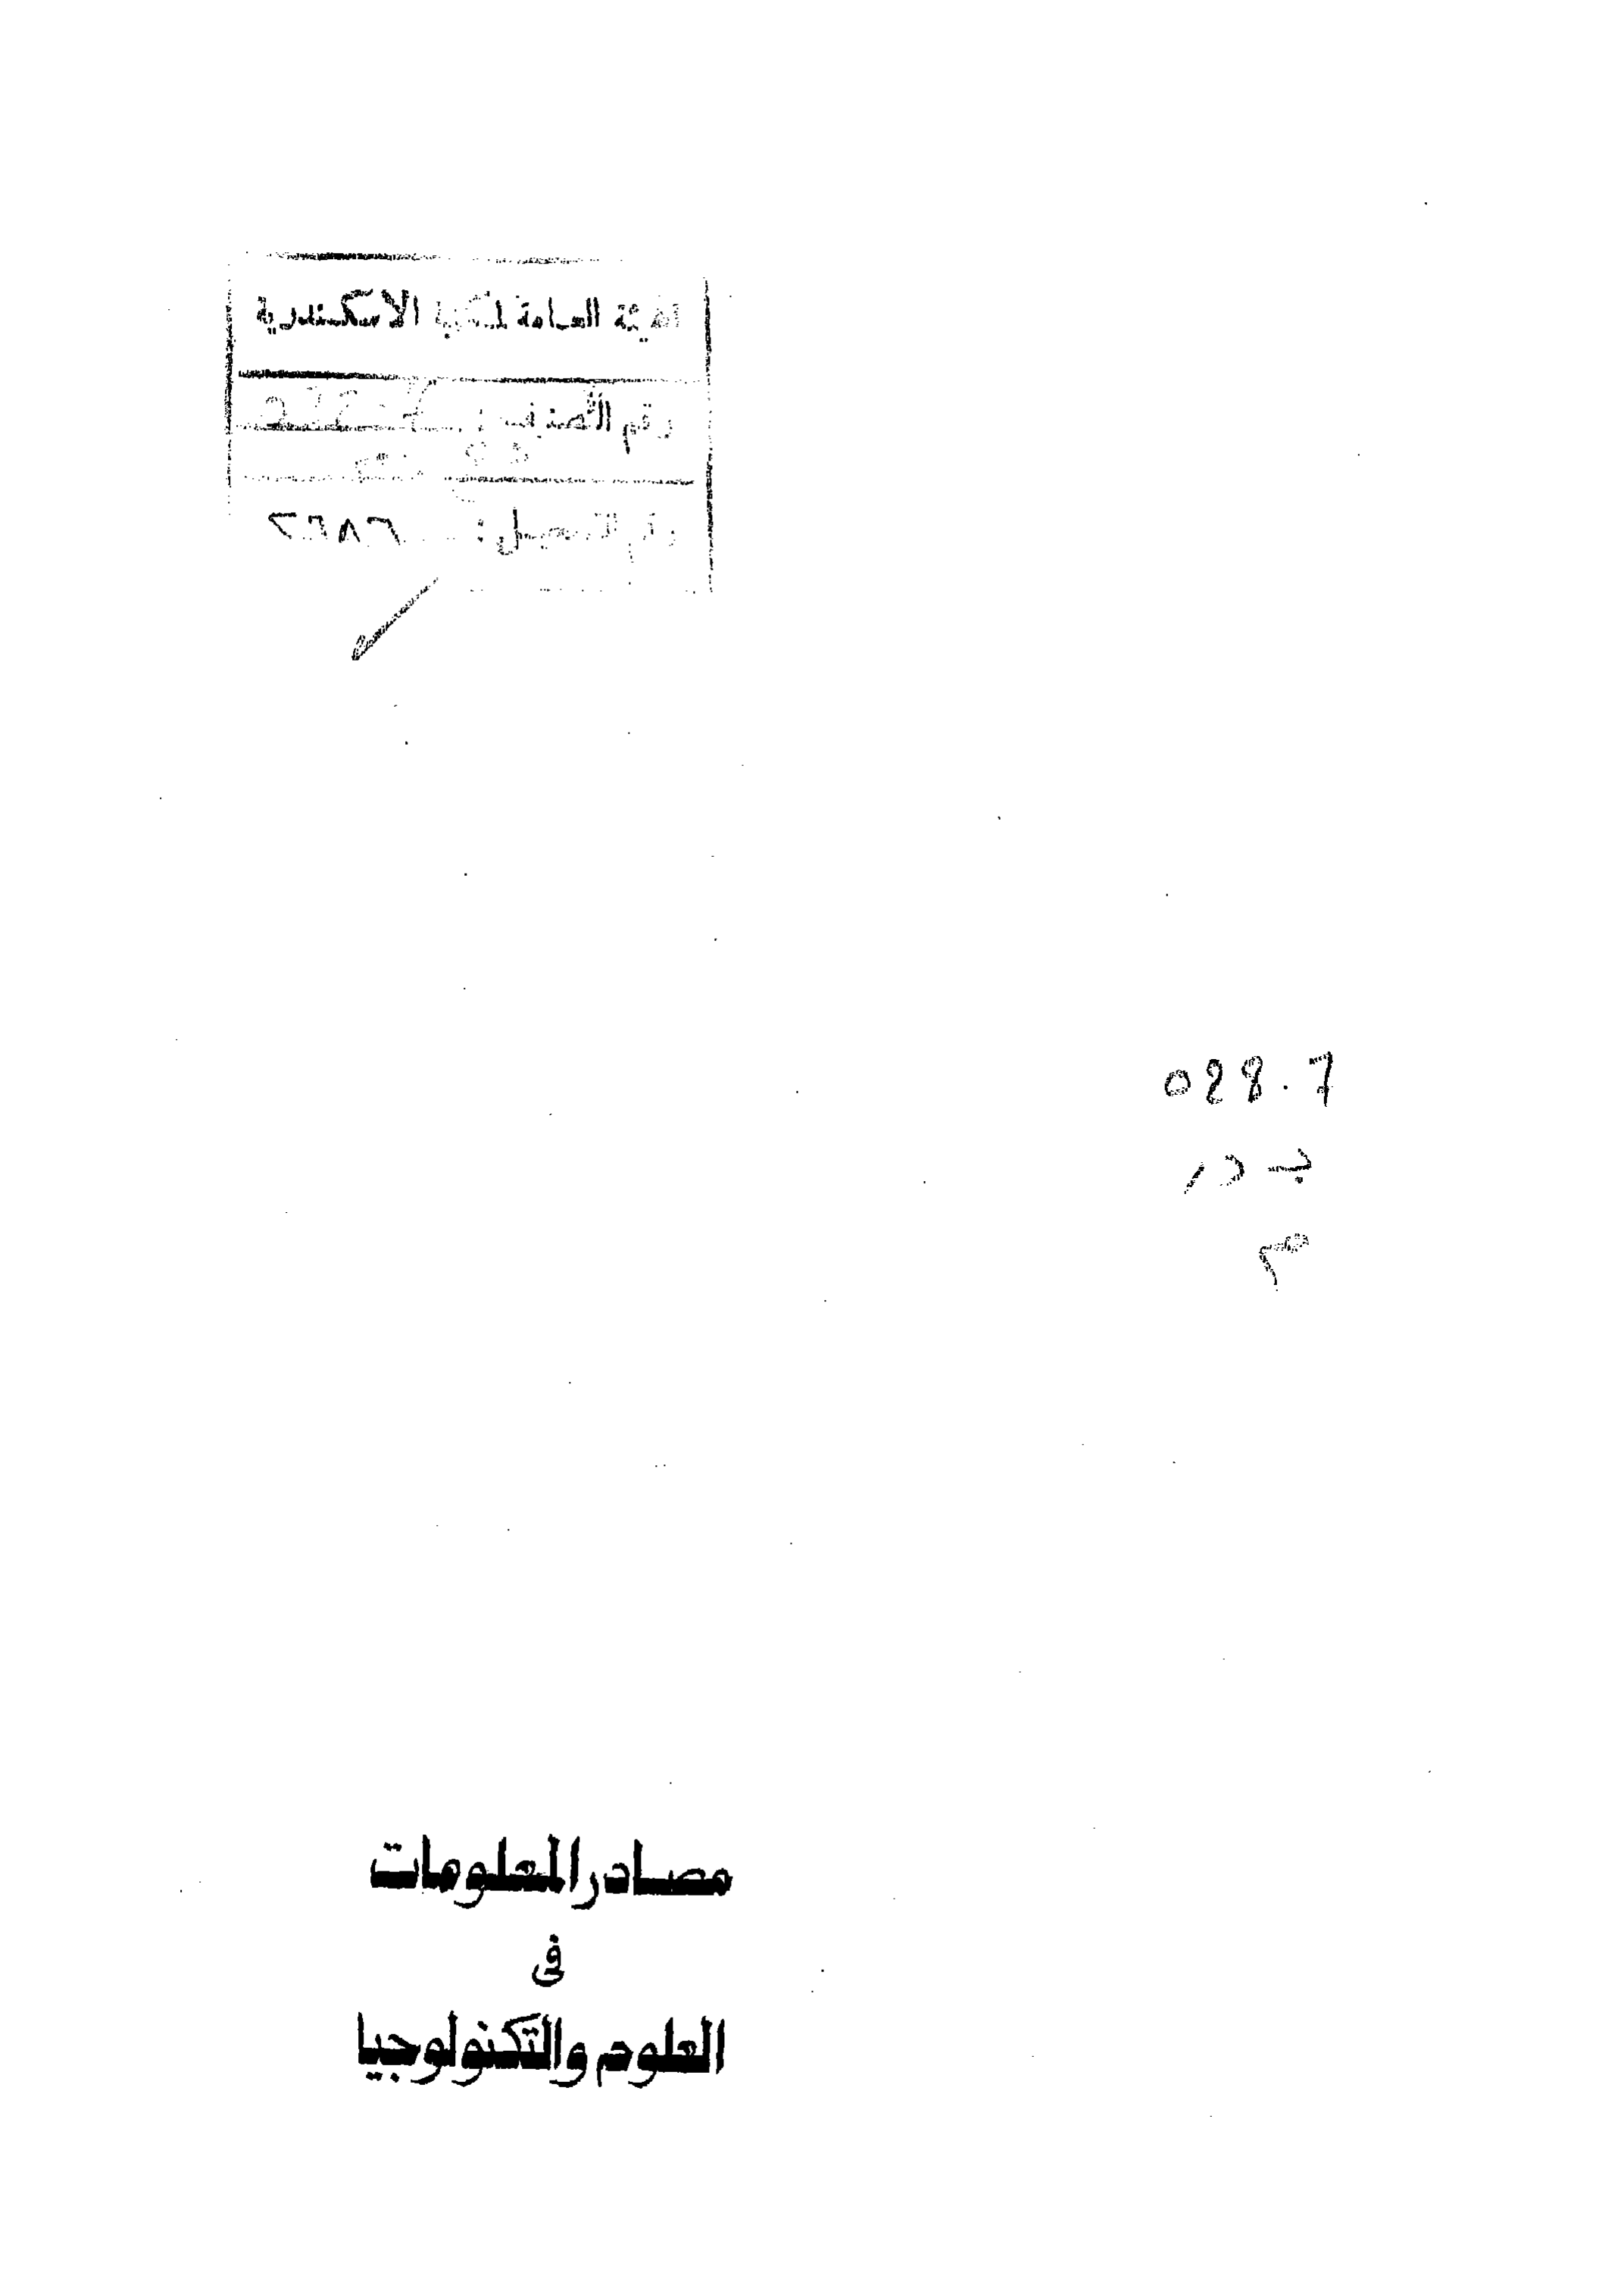 الهيئة العامة لمكتبة الاسكندرية
رقم التصنيف :
رقم التسجيل : ٢٦٨٦
028.7
بدر
م
مصادر المعلومات
فى
العلوم والتكنولوجيا